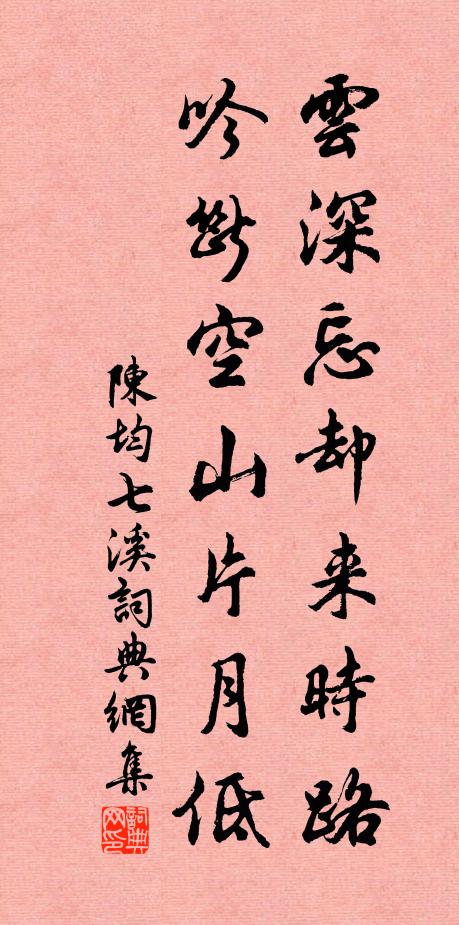 雲深忘却来時路
吟斷空山片月低
陳均七溪詞典網集
詞典
网印